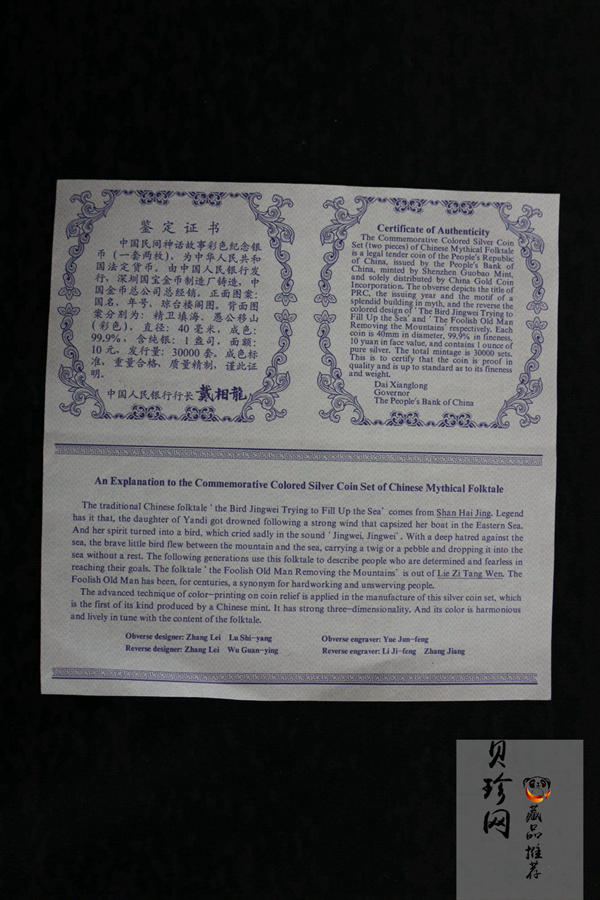 鉴定证书
中国民间神话故事彩色纪念银
币(一套两枚),为中华人民共和
国法定货币。由中国人民银行发
行,深圳国宝金币制造厂铸造,中
国金币总公司总经销。正面图案:
国名、年号、琼台楼阁图。背面图
案分别为:精卫填海、愚公移山
(彩色)。直径:40毫米,成色:
99.9%,含纯银:1盎司,面额:
10元,发行量:30000套。成色标
准,重量合格,质量精制,谨此证
明。
中国人民银行行长 戴相龍
Certificate of Authenticity
The Commemorative Colored Silver Coin
Set (two pieces) of Chinese Mythical Folktale
is a legal tender coin of the People's Republic
of China, issued by the People's Bank of
China, minted by Shenzhen Guobao Mint,
and solely distributed by China Gold Coin
Incorporation. The obverse depicts the title of
PRC, the issuing year and the motif of a
splendid building in myth, and the reverse the
colored design of 'The Bird Jingwei Trying to
Fill Up the Sea' and 'The Foolish Old Man
Removing the Mountains' respectively. Each
coin is 40mm in diameter, 99.9% in fineness,
10 yuan in face value, and contains 1 ounce of
pure silver. The total mintage is 30000 sets.
This is to certify that the coin is proof in
quality and is up to standard as to its fineness
and weight.
Dai Xianglong
Governor
The People's Bank of China
An Explanation to the Commemorative Colored Silver Coin Set of Chinese Mythical Folktale
The traditional Chinese folktale 'the Bird Jingwei Trying to Fill Up the Sea' comes from Shan Hai Jing. Legend
has it that, the daughter of Yandi got drowned following a strong wind that capsized her boat in the Eastern Sea.
And her spirit turned into a bird, which cried sadly in the sound 'Jingwei, Jingwei'. With a deep hatred against the
sea, the brave little bird flew between the mountain and the sea, carrying a twig or a pebble and dropping it into the
sea without a rest. The following generations use this folktale to describe people who are determined and fearless in
reaching their goals. The folktale 'the Foolish Old Man Removing the Mountains' is out of Lie Zi Tang Wen. The
Foolish Old Man has been, for centuries, a synonym for hardworking and unswerving people.
The advanced technique of color-printing on coin relief is applied in the manufacture of this silver coin set, which
is the first of its kind produced by a Chinese mint. It has strong three-dimensionality. And its color is harmonious
and lively in tune with the content of the folktale.
Obverse designer: Zhang Lei Lu Shi-yang
Obverse engraver: Yue Jun-feng
Reverse designer: Zhang Lei Wu Guan-ying
Reverse engraver: Li Ji-feng Zhang Jiang
贝珍网
藏品推荐